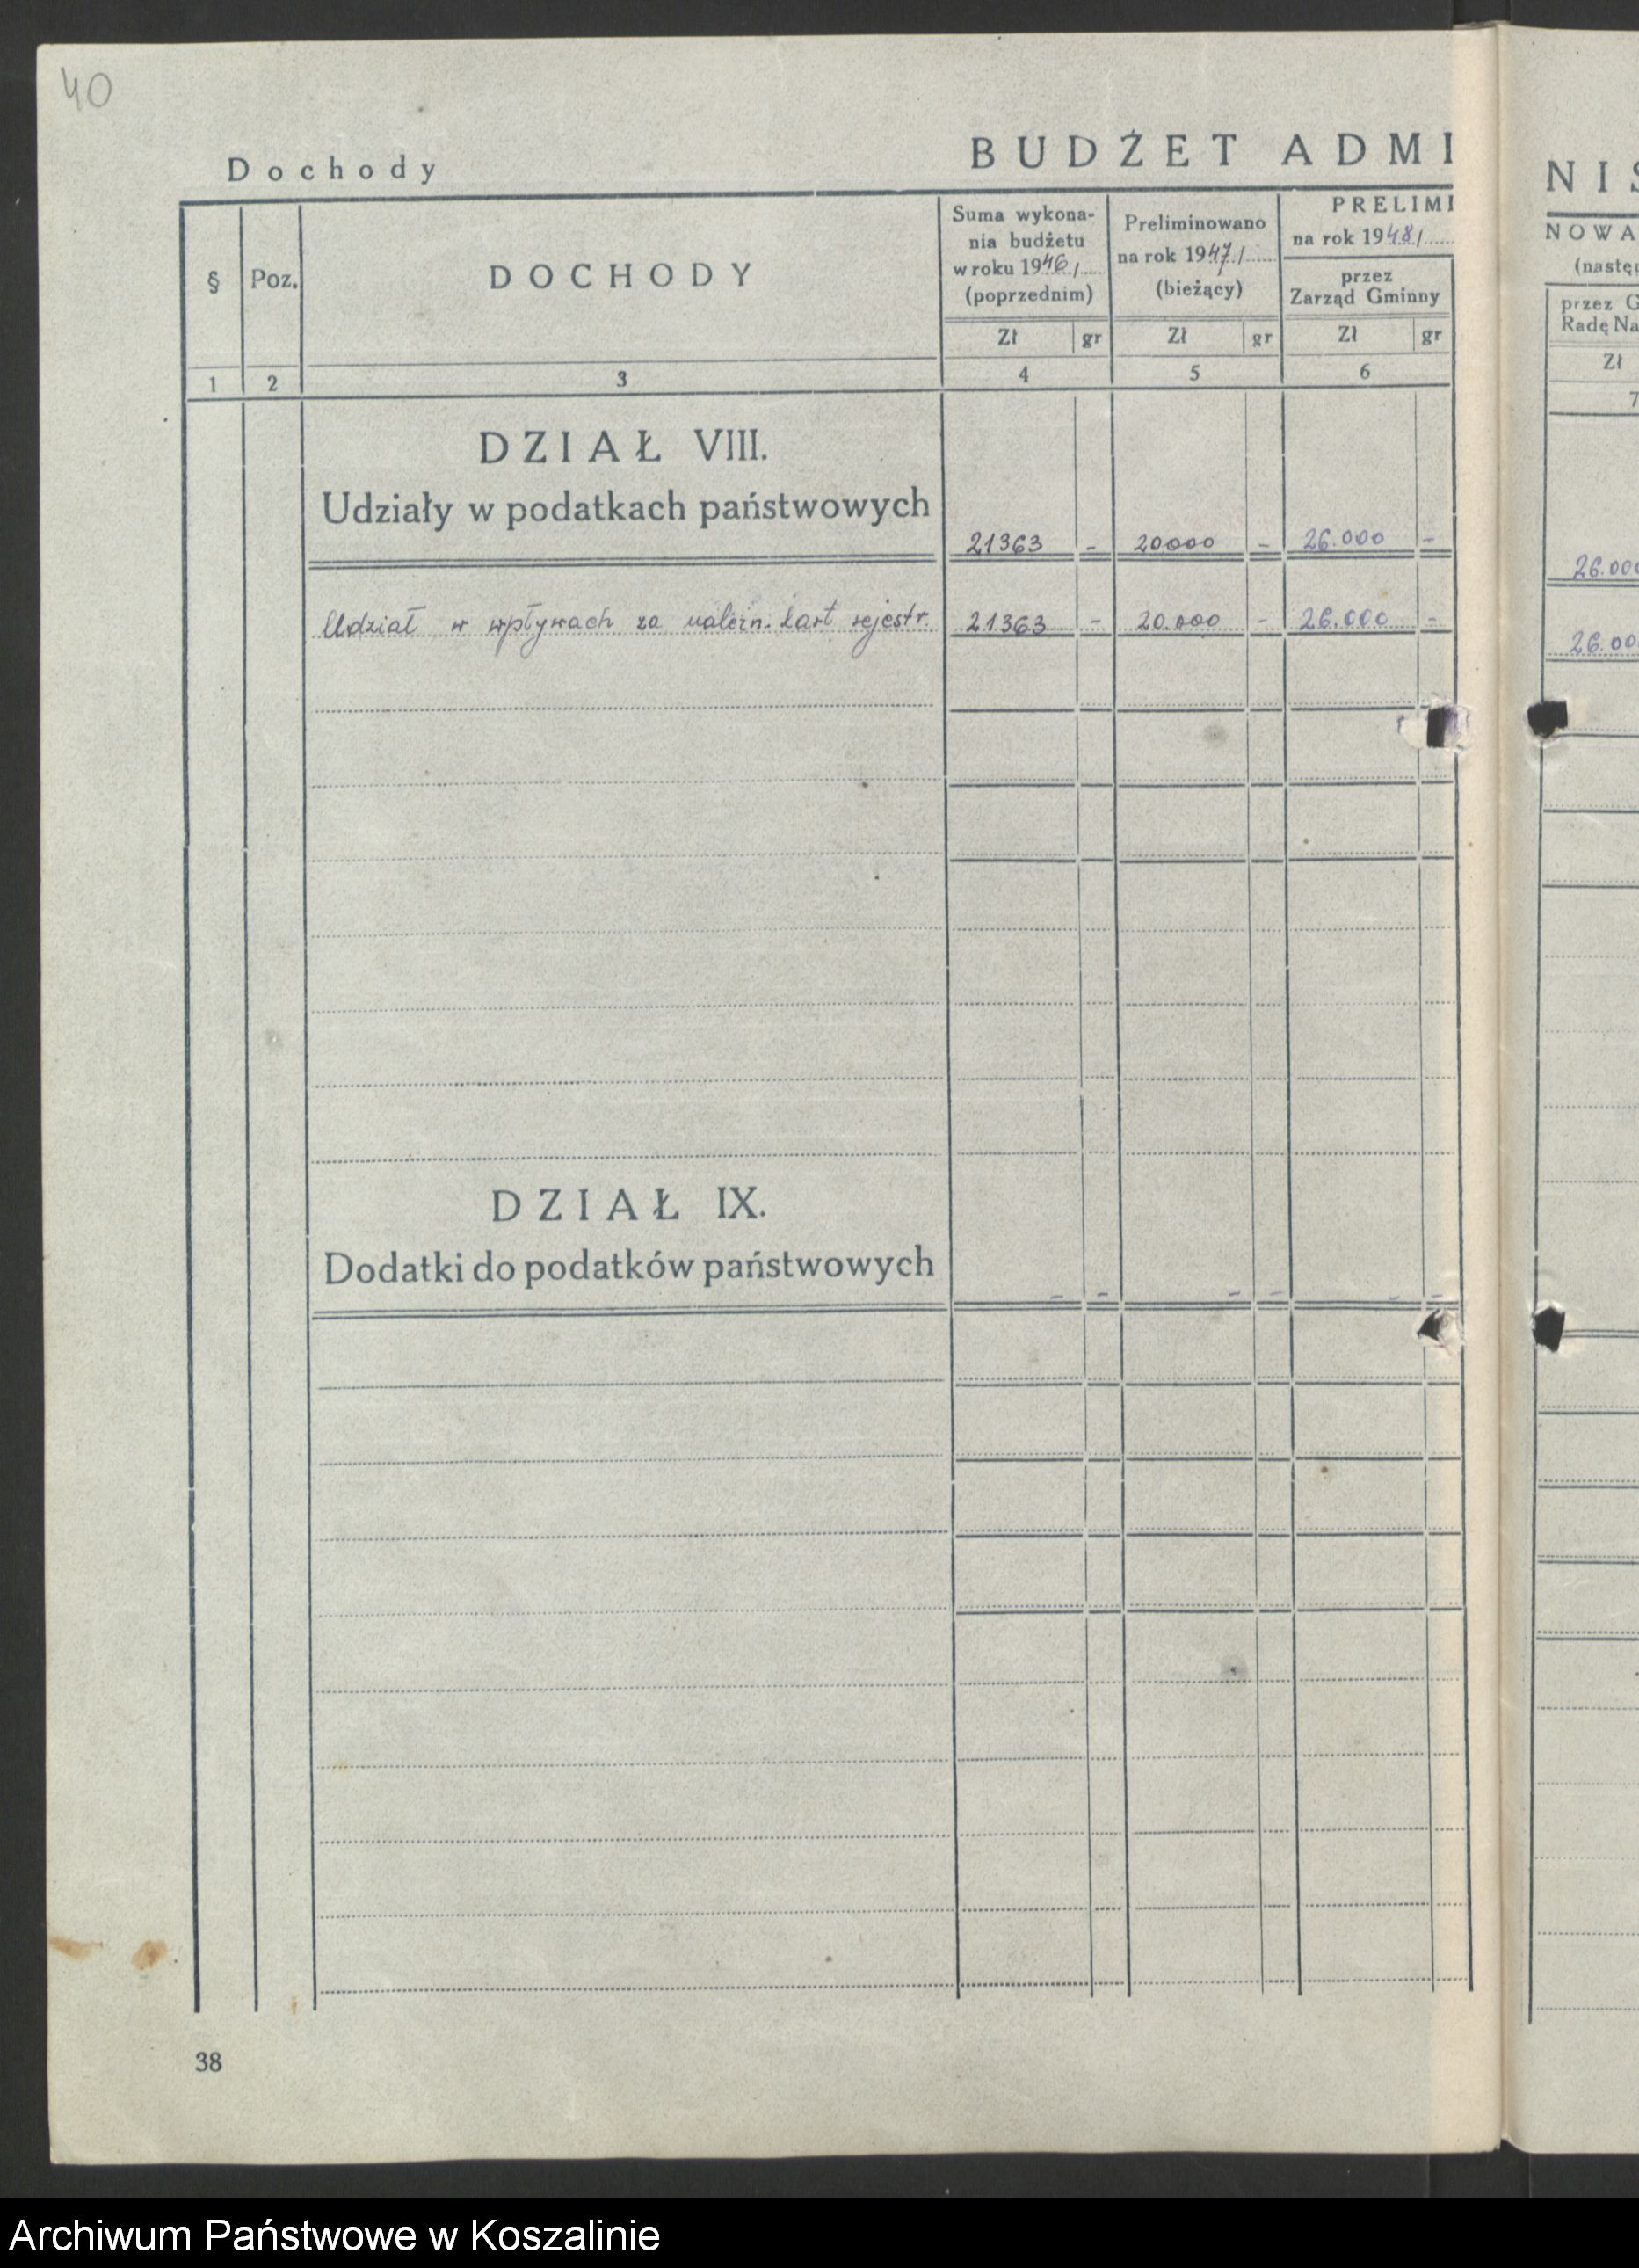 40
Dochody
BUDŻET ADMI
§
Poz.
DOCHODY
Suma wykona-
nia budżetu
w roku 1946/
(poprzednim)
Preliminowano
na rok 1947/
(bieżący)
PRELIMI
na rok 1948/
przez
Zarząd Gminny
Zł gr Zł gr Zł gr
1 2 3 4 5 6
DZIAŁ VIII.
Udziały w podatkach państwowych
21363 - 20000 - 26.000 -
Udział w wpływach za należn. kart rejestr. 21363 - 20.000 - 26.000 -
DZIAŁ IX.
Dodatki do podatków państwowych
- - - - - -
38
NIS
NOWA
(nastę
przez G
Radę Na
Zł
7
26.000
26.00
Archiwum Państwowe w Koszalinie